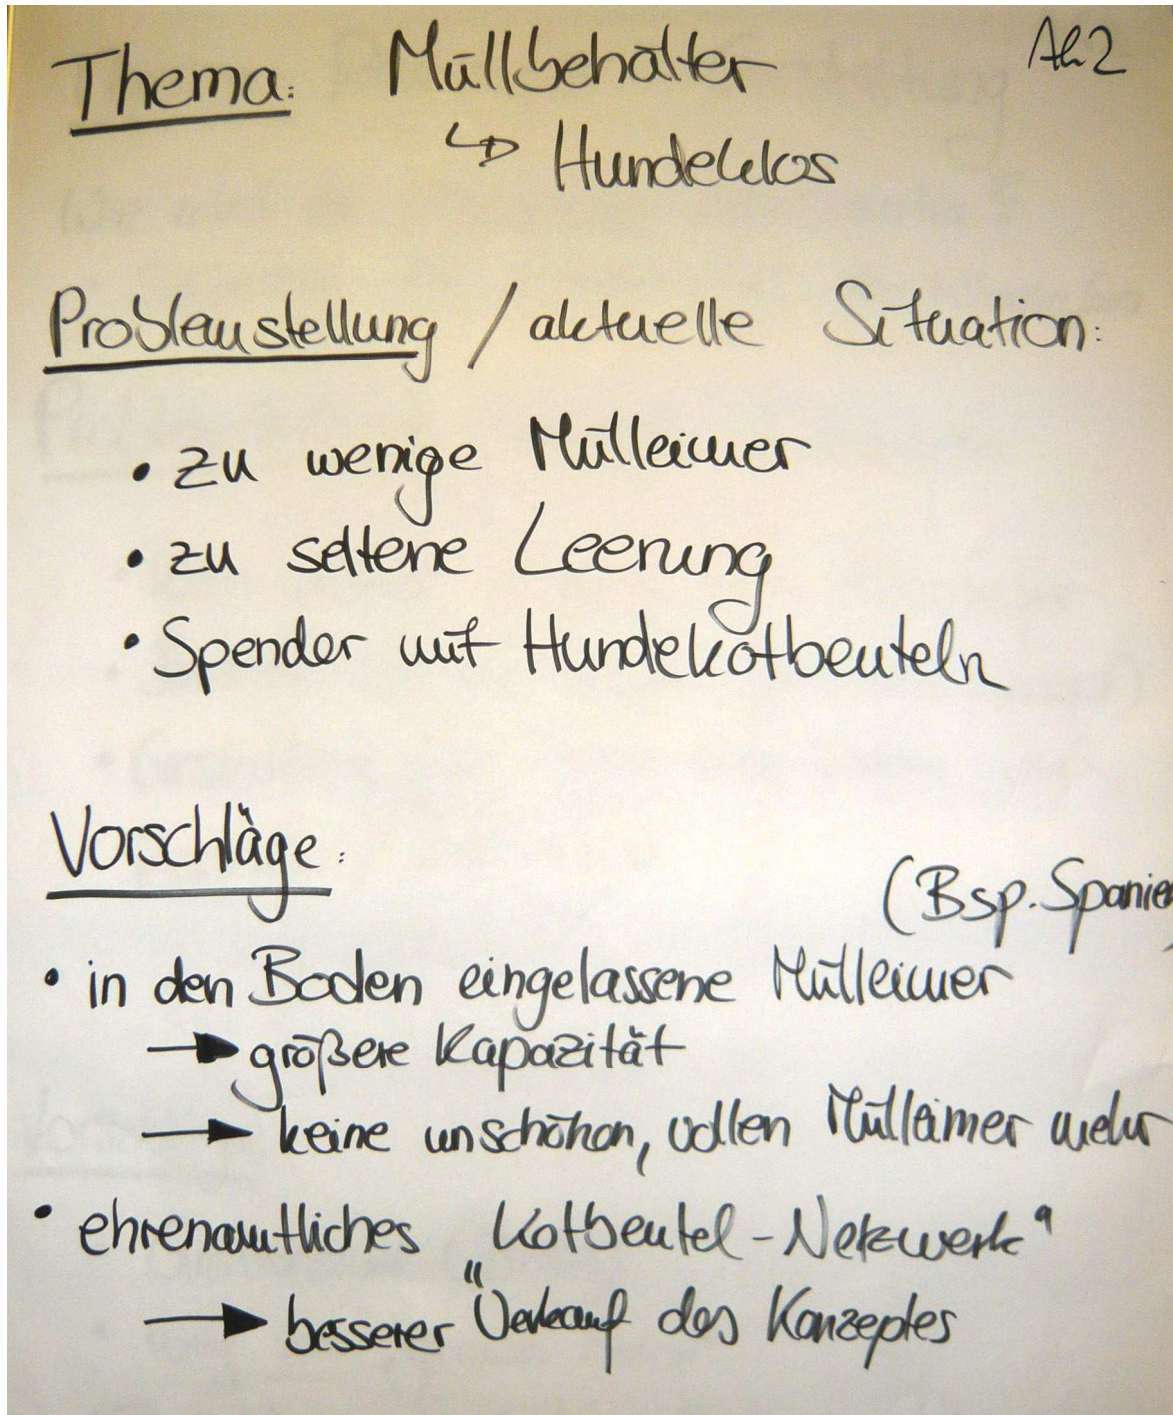 Thema: Müllbehälter
↳ Hundeklos
Problemstellung / aktuelle Situation:
• zu wenige Mülleimer
• zu seltene Leerung
• Spender mit Hundekotbeuteln
Vorschläge:
(Bsp. Spanien)
• in den Boden eingelassene Mülleimer
→ größere Kapazität
→ keine unschönen, vollen Mülleimer mehr
• ehrenamtliches „Kotbeutel-Netzwerk“
→ besserer Verkauf des Konzeptes